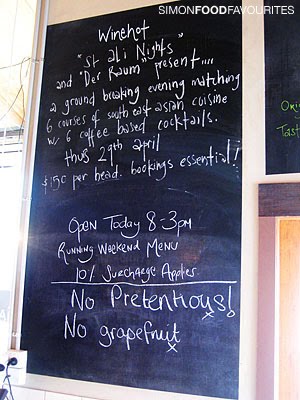 SIMONFOODFAVOURITES
Winehot
"St ali Nights"
and "Der Raum" present....
a ground breaking evening matching
6 courses of south east asian cuisine
w/ 6 coffee based cocktails.
thus 29th april
$150 per head. bookings essential!
OPEN TODAY 8-3PM
RUNNING WEEKEND MENU
10% SURCHARGE APPLIES
No Pretentious!
No grapefruit